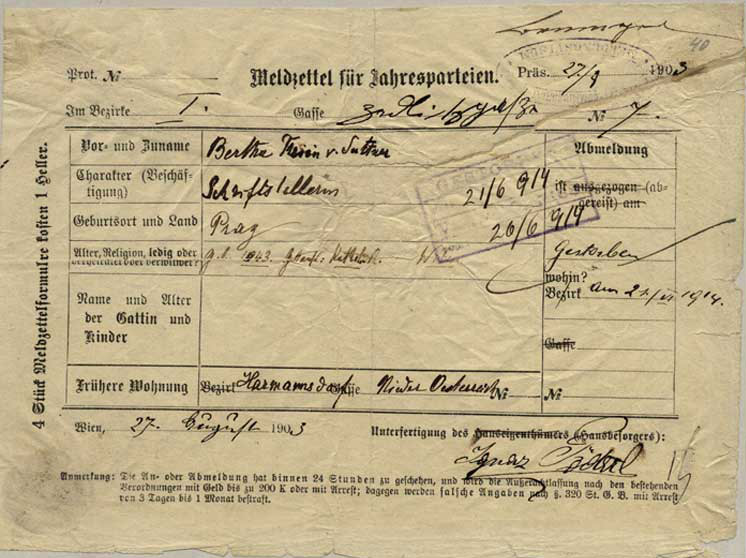 40
Prot. №
Meldzettel für Jahresparteien.
Präs. 27/8 1903
Im Bezirke I. Gasse Zedlitzgasse № 7.
Vor- und Zuname
Bertha v. Suttner
Abmeldung
Charakter (Beschäf-
tigung)
Schriftstellerin
21/6 914
ist ausgezogen (ab-
gereist) am
Geburtsort und Land
Prag
26/6 914
Alter, Religion, ledig oder
verheiratet oder verwitwet?
g. b. 1843. Kathol.
Gestorben
wohin?
Bezirk am 21/VI 1914.
Name und Alter
der Gattin und
Kinder
Gasse
Frühere Wohnung
Bezirk Harmannsdorf Gasse Nieder Oesterreich № №
Wien, 27. August 1903
Unterfertigung des Hauseigenthümers (Hausbesorgers):
Ignaz
Anmerkung: Die An- oder Abmeldung hat binnen 24 Stunden zu geschehen, und wird die Außerachtlassung nach den bestehenden
Verordnungen mit Geld bis zu 200 K oder mit Arrest; dagegen werden falsche Angaben nach § 320 St. G. B. mit Arrest
von 3 Tagen bis 1 Monat bestraft.
4 Stück Meldzettelformulre kosten 1 Heller.